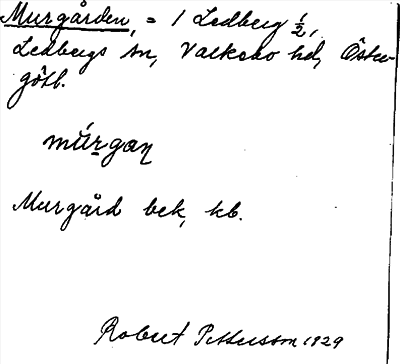 Murgården, = 1 Ledberg ½,
Ledbergs sn, Valkebo hd, Öster-
götl.
múrgan
Murgård bek, kb.
Robert Pettersson 1929